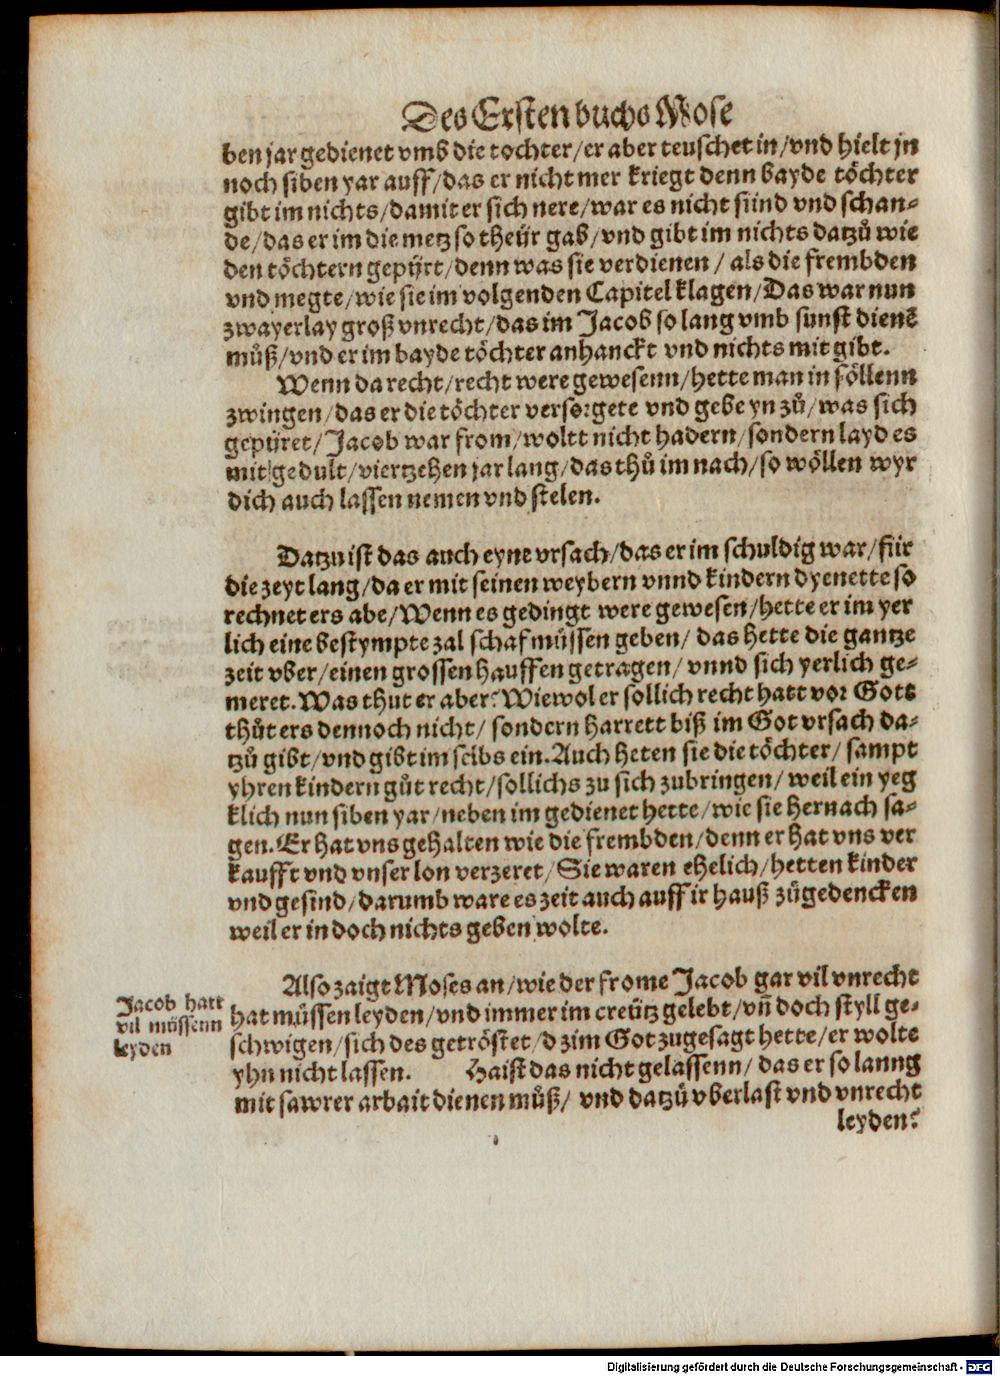 Des Ersten buchs Mose
ben jar gedienet vmb die tochter/ er aber teuschet in/ vnd hielt jn
noch siben yar auff/ das er nicht mer kriegt denn bayde töchter
gibt im nichts/ damit er sich nere/ war es nicht sünd vnd schan-
de/ das er im die metz so theür gab/ vnd gibt im nichts datzů wie
den töchtern gepürt/ denn was sie verdienen / als die frembden
vnd megte/ wie sie im volgenden Capitel klagen/ Das war nun
zwayerlay groß vnrecht/ das im Jacob so lang vmb sunst dienẽ
můß/ vnd er im bayde töchter anhanckt vnd nichts mit gibt.
Wenn da recht/ recht were gewesenn/ hette man in söllenn
zwingen/ das er die töchter versorgete vnd gebe yn zů/ was sich
gepüret/ Jacob war from/ woltt nicht hadern/ sondern layd es
mit gedult/ viertzehen jar lang/ das thů im nach/ so wöllen wyr
dich auch lassen nemen vnd stelen.
Datzu ist das auch eyne vrsach/ das er im schuldig war/ für
die zeyt lang/ da er mit seinen weybern vnnd kindern dyenette so
rechnet ers abe/ Wenn es gedingt were gewesen/ hette er im yer
lich eine bestympte zal schaf müssen geben/ das hette die gantze
zeit vber/ einen grossen hauffen getragen/ vnnd sich yerlich ge-
meret. Was thut er aber? Wiewol er sollich recht hatt vor Gott
thůt ers dennoch nicht/ sondern harrett biß im Got vrsach da-
tzů gibt/ vnd gibt im selbs ein. Auch heten sie die töchter/ sampt
yhren kindern gůt recht/ sollichs zu sich zubringen/ weil ein yeg
klich nun siben yar/ neben im gedienet hette/ wie sie hernach sa-
gen. Er hat vns gehalten wie die frembden/ denn er hat vns ver
kaufft vnd vnser lon verzeret/ Sie waren ehelich/ hetten kinder
vnd gesind/ darumb ware es zeit auch auff ir hauß zůgedencken
weil er in doch nichts geben wolte.
Also zaigt Moses an/ wie der frome Jacob gar vil vnrecht
hat müssen leyden/ vnd immer im creütz gelebt/ vñ doch styll ge-
schwigen/ sich des getröstet/ dz im Got zugesagt hette/ er wolte
yhn nicht lassen. Haist das nicht gelassenn/ das er so lanng
mit sawrer arbait dienen můß/ vnd datzů vberlast vnd vnrecht
leyden?
Jacob hatt
vil müssenn
leyden
Digitalisierung gefördert durch die Deutsche Forschungsgemeinschaft - DFG